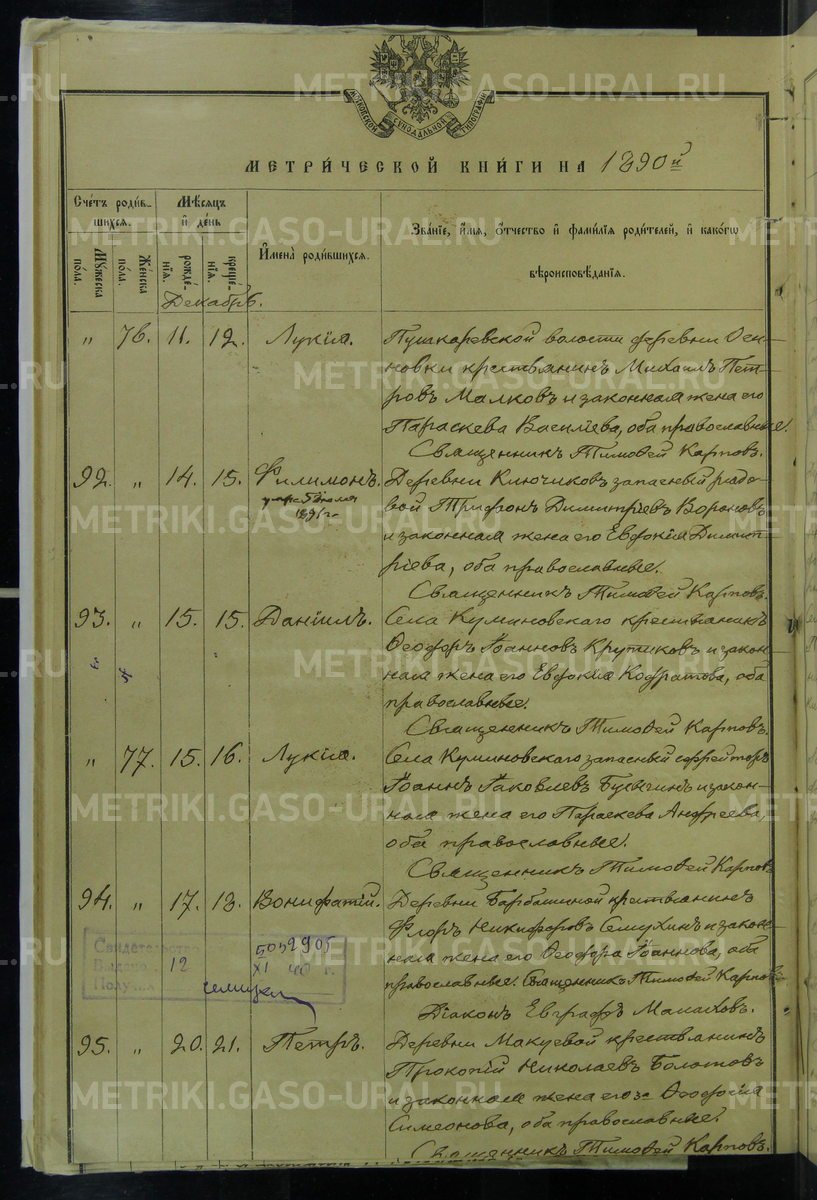 МОСКОВСКОЙ СУНОДАЛЬНОЙ ТИПОГРАФІИ
МЕТРИ́ЧЕСКОЙ КНИ́ГИ НА 1890й
Сче́тъ роди́в-
шихся.
Му́жеска
по́ла.
Же́нска
по́ла.
Мѣ́сяцъ
и҆ де́нь
рожде́-
нїѧ.
креще́-
нїѧ.
И҆мена̀ роди́вшихся.
Зва́нїе, и҆́мя, ѻ҆́тчество и҆ фами́лїя роди́телей, и҆ како́гѡ
вѣроисповѣ́данїя.
Декабрь.
" 76. 11. 12. Лукія. Пушкаревской волости деревни Осн-
новки крестьянинъ Михаилъ Пет-
ровъ Малковъ и законная жена его
Параскева Василіева, оба православные.
Священникъ Тимофей Карповъ.
92. " 14. 15. Филимонъ. Деревни Ключиковъ запасный рядо-
умре 5 Іюля
1891 г.
вой Трифонъ Димитріевъ Вороновъ
и законная жена его Евдокія Димит-
ріева, оба православные.
Священникъ Тимофей Карповъ.
93. " 15. 15. Даніилъ. Села Куминовскаго крестьянинъ
Ѳеодоръ Іоанновъ Крутиковъ и закон-
ная жена его Евдокія Кодратова, оба
православные.
Священникъ Тимофей Карповъ.
" 77. 15. 16. Лукія. Села Куминовскаго запасный ефрейторъ
Іоаннъ Іаковлевъ Бусыгинъ и закон-
ная жена его Параскева Андреева,
оба православные.
Священникъ Тимофей Карповъ
94. " 17. 18. Вонифатій. Деревни Барбашиной крестьянинъ
Флоръ Никифоровъ Семухинъ и закон-
ная жена его Ѳеодора Іоаннова, оба
православные. Священникъ Тимофей Карповъ
Діаконъ Евграфъ Малаховъ.
Свидетельство
Выдано 12 XI
Получил
95. " 20. 21. Петръ. Деревни Макуевой крестьянинъ
Прокопій Николаевъ Болотовъ
и законная жена его Ѳеодосія
Симеонова, оба православные.
Священникъ Тимофей Карповъ.
METRIKI.GASO-URAL.RU